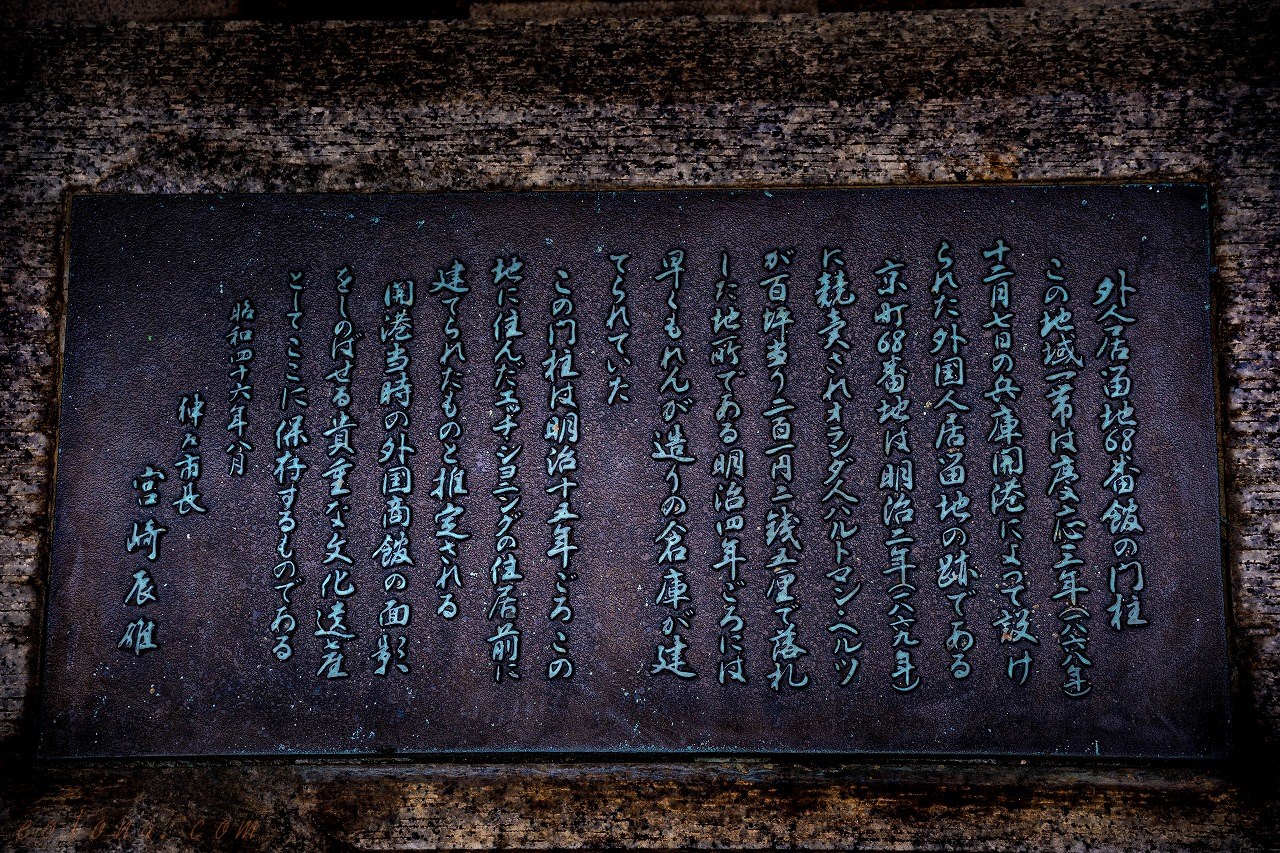 外人居留地68番館の門柱
この地域一帯は慶応三年(一八六八年)
十二月七日の兵庫開港によつて設け
られた外国人居留地の跡である
京町68番地は明治二年(一八六九年)
に競売されオランダ人ハルトマン・ヘルツ
が百坪当り二百一円二銭五厘で落札
した地所である明治四年ごろには
早くもれんが造りの倉庫が建
てられていた
この門柱は明治十五年ごろこの
地に住んだエッチシヨニングの住居前に
建てられたものと推定される
開港当時の外国商館の面影
をしのばせる貴重な文化遺産
としてここに保存するものである
昭和四十六年八月
神戸市長
宮崎辰雄
cotohai.com